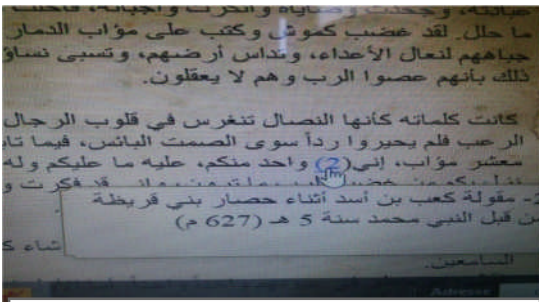 عبادته، وجحدت وصاياه وأنكرت واجباته،
ما حلل. لقد غضب كموش وكتب على مؤاب الدمار
جباههم لنعال الأعداء، وتداس أرضهم، وتسبى نساؤ
ذلك بأنهم عصوا الرب وهم لا يعقلون.
كانت كلماته كأنها النصال تنغرس في قلوب الرجال
الرعب فلم يحيروا رداً سوى الصمت البائس، فيما تا
معشر مؤاب، إني(2) واحد منكم، عليه ما عليكم وله
2- مقولة كعب بن أسد أثناء حصار بني قريظة
من قبل النبي محمد سنة 5 هـ (627 م)
شاء ك
السامعين.
Adresse